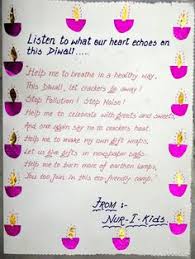 Listen to what our heart echoes on
this Diwali....
Help me to breathe in a healthy way,
This Diwali, let crackers go away!
Stop Pollution! Stop Noise!
Help me to celebrate with greets and sweets,
And one again say no to crackers heat.
Help me to make my own gift wraps,
Let us give gifts in newspaper caps.
Help me to burn more of earthen lamps,
You too join in this eco-friendly camp.
FROM :-
NUR-I-Kids